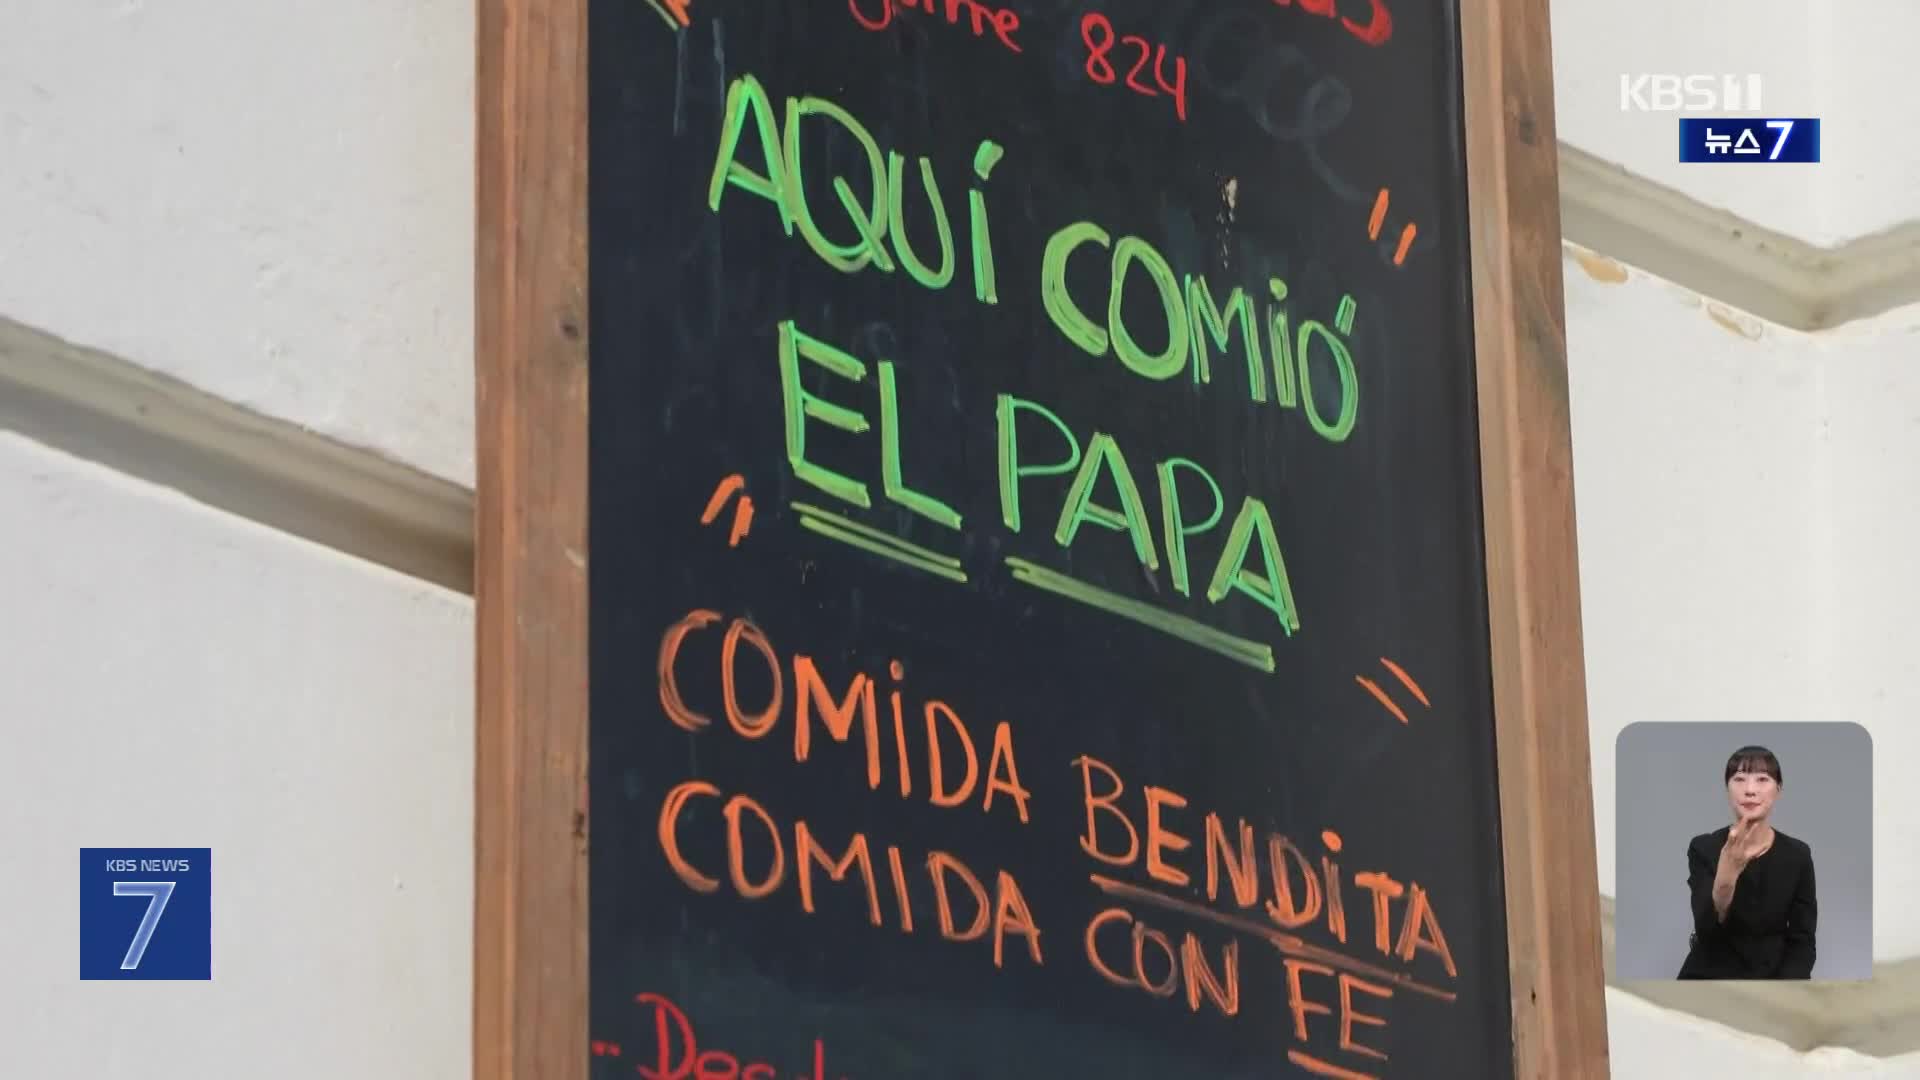 824
AQUÍ COMIÓ
EL PAPA
COMIDA BENDITA
COMIDA CON FE
KBS 1
뉴스7
KBS NEWS
7